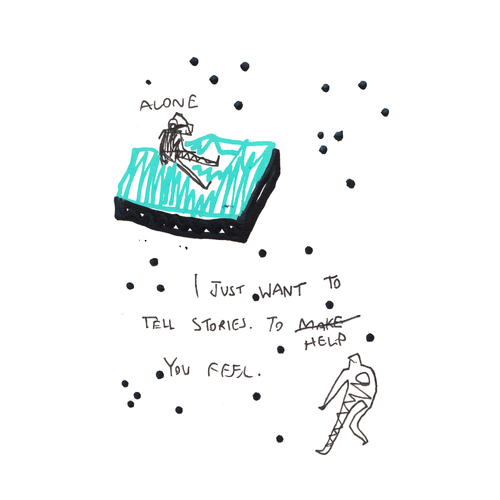 ALONE
I JUST WANT TO
TELL STORIES. TO MAKE
HELP
YOU FEEL.